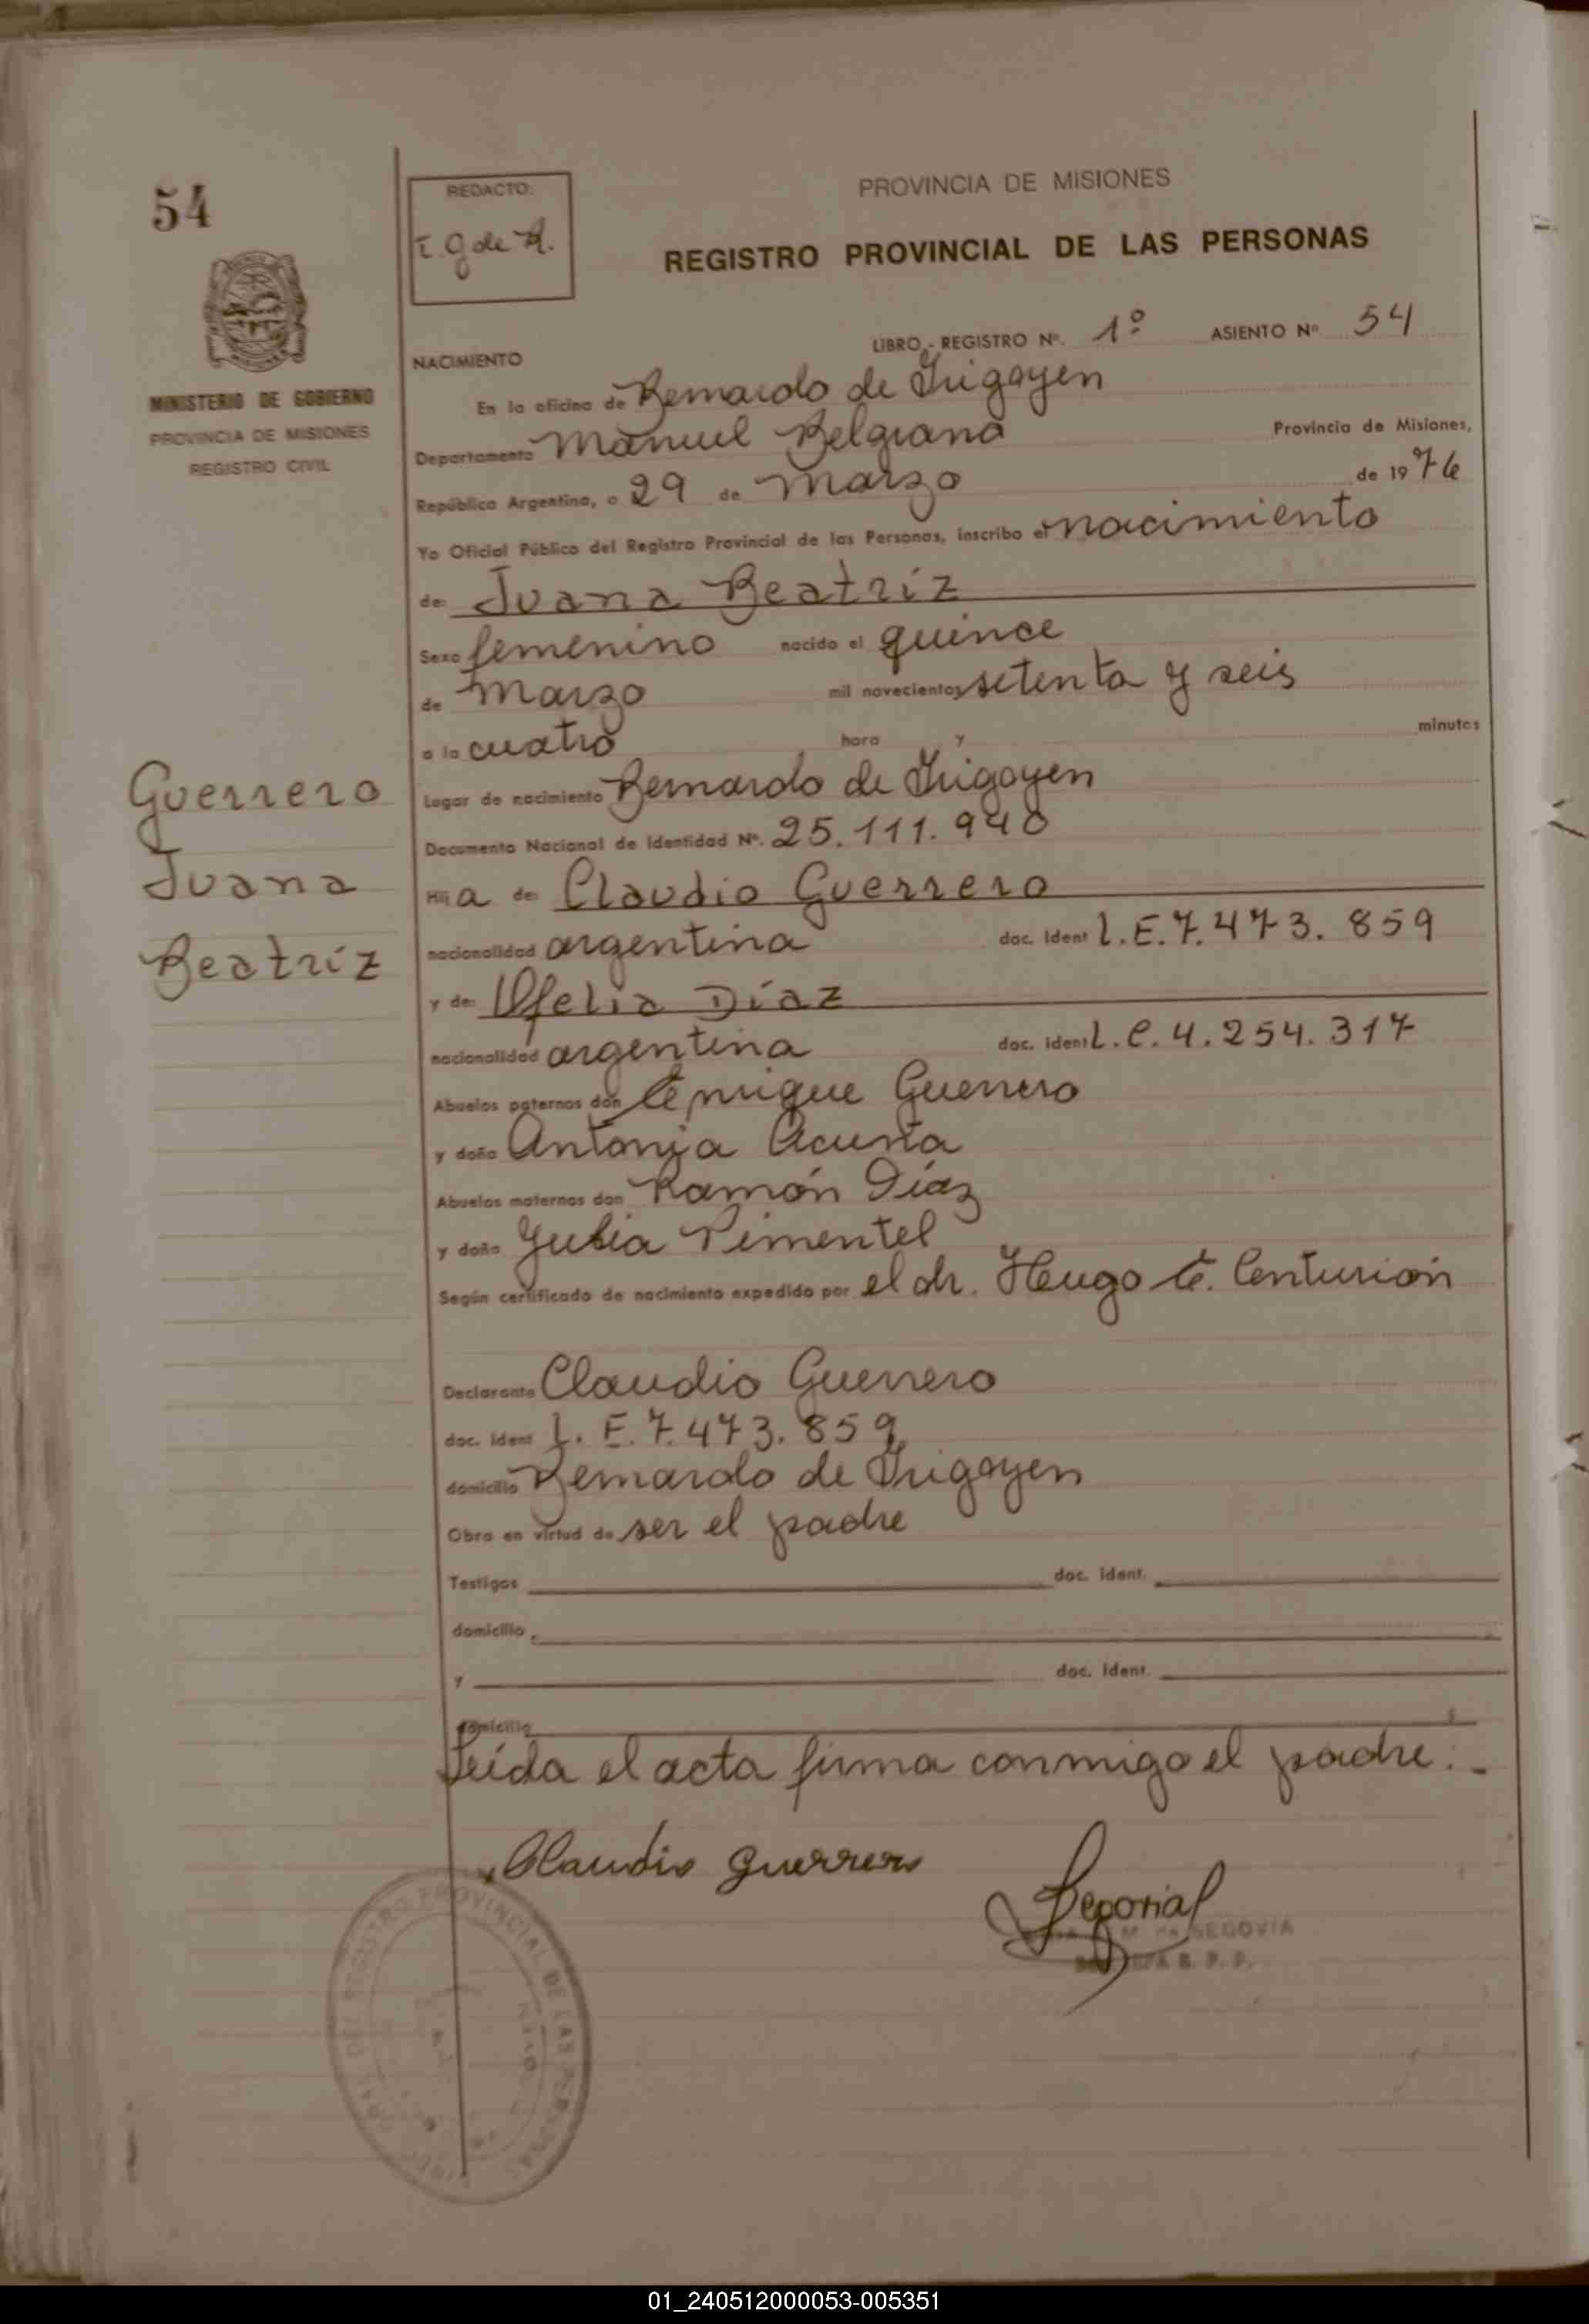 54
REDACTO:
I. G de A.
PROVINCIA DE MISIONES
REGISTRO PROVINCIAL DE LAS PERSONAS
MINISTERIO DE GOBIERNO
PROVINCIA DE MISIONES
REGISTRO CIVIL
LIBRO - REGISTRO Nº. 1º ASIENTO Nº 54
NACIMIENTO
En la oficina de Bernardo de Irigoyen
Departamento Manuel Belgrano Provincia de Misiones,
República Argentina, a 29 de Marzo de 1976
Yo Oficial Público del Registro Provincial de las Personas, inscribo el nacimiento
de: Juana Beatríz
Sexo femenino nacido el quince
de Marzo mil novecientos setenta y seis
a la cuatro hora y minutos
Lugar de nacimiento Bernardo de Irigoyen
Documento Nacional de Identidad Nº. 25.111.940
Hija de: Claudio Guerrero
nacionalidad argentina doc. Ident L.E.7.473.859
y de: Ofelia Díaz
nacionalidad argentina doc. Ident L.C.4.254.317
Abuelos paternos don Enrique Guerrero
y doña Antonia Acuña
Abuelos maternos don Ramón Díaz
y doña Julia Pimentel
Según certificado de nacimiento expedido por el dr. Hugo E. Centurión
Declarante Claudio Guerrero
doc. Ident L.E.7.473.859
domicilio Bernardo de Irigoyen
Obra en virtud de ser el padre
Testigos doc. Ident.
domicilio
y doc. Ident.
domicilio
Leída el acta firma conmigo el padre.-
Guerrero
Juana
Beatríz
Claudio Guerrero
SEGOVIA
R. P. P.
REGISTRO PROVINCIAL DE LAS PERSONAS
01_240512000053-005351